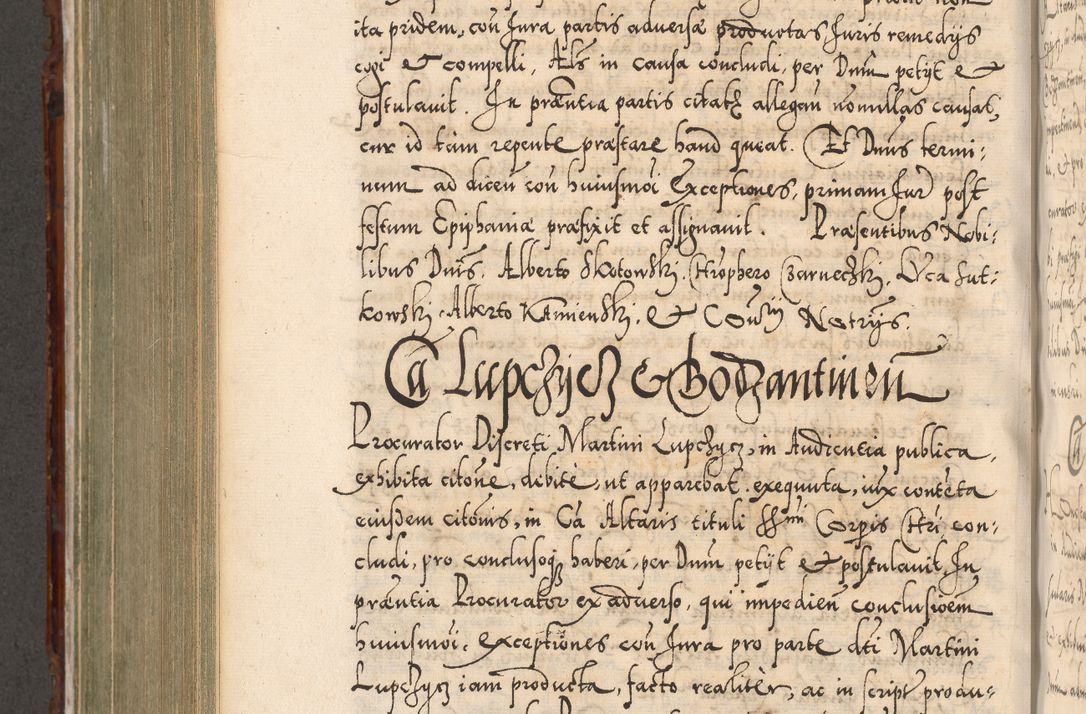 ita pridem, coñ Jura partis adversæ productas, Juris remedijs
cogi & compelli, Als in causa concludi, per Dnm̃ petijt &
postulavit. In præntia partis citatæ allegañ nonnullas causas,
cur id tam repente præstare haud queat. Et Dnus termi:
num ad diceñ coñ huiusmõi Exceptiones, primam Jur̃ post
festum Epiphaniæ præfixit et assignavit. Præsentibus Nobi:
libus Dnis. Alberto Skotowski, Chrophero Czarnecki, Luca Sut:
kowski, Alberto Kamienski, & Cous̃ij Notrijs.
Cã Lupczycz & Bodzantineñ
Procurator Discreti Martini Lupczycz, in Audientia publica,
exhibita citõne, debitè, ut apparebat exequuta, iux contẽta
eiusdem citõnis, in Cã Altaris tituli SSmi Corpis Chri con:
cludi, pro conclusoq; haberi, per Dnm̃ petijt & postulavit. In
præntia Procurator ex adverso, qui impedieñ conclusioẽm
huiusmõi, exceptiones coñ Jura pro parte dti Martini
Lupczycz iam producta, facto realiter, ac in script produ: